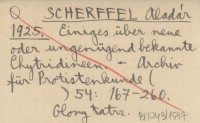 SCHERFFEL Aladár
1925. Einiges über neue
oder ungenügend bekannte
Chytridineen. - Archiv
für Protistenkunde (
) 54: 167-260.
Tátra.